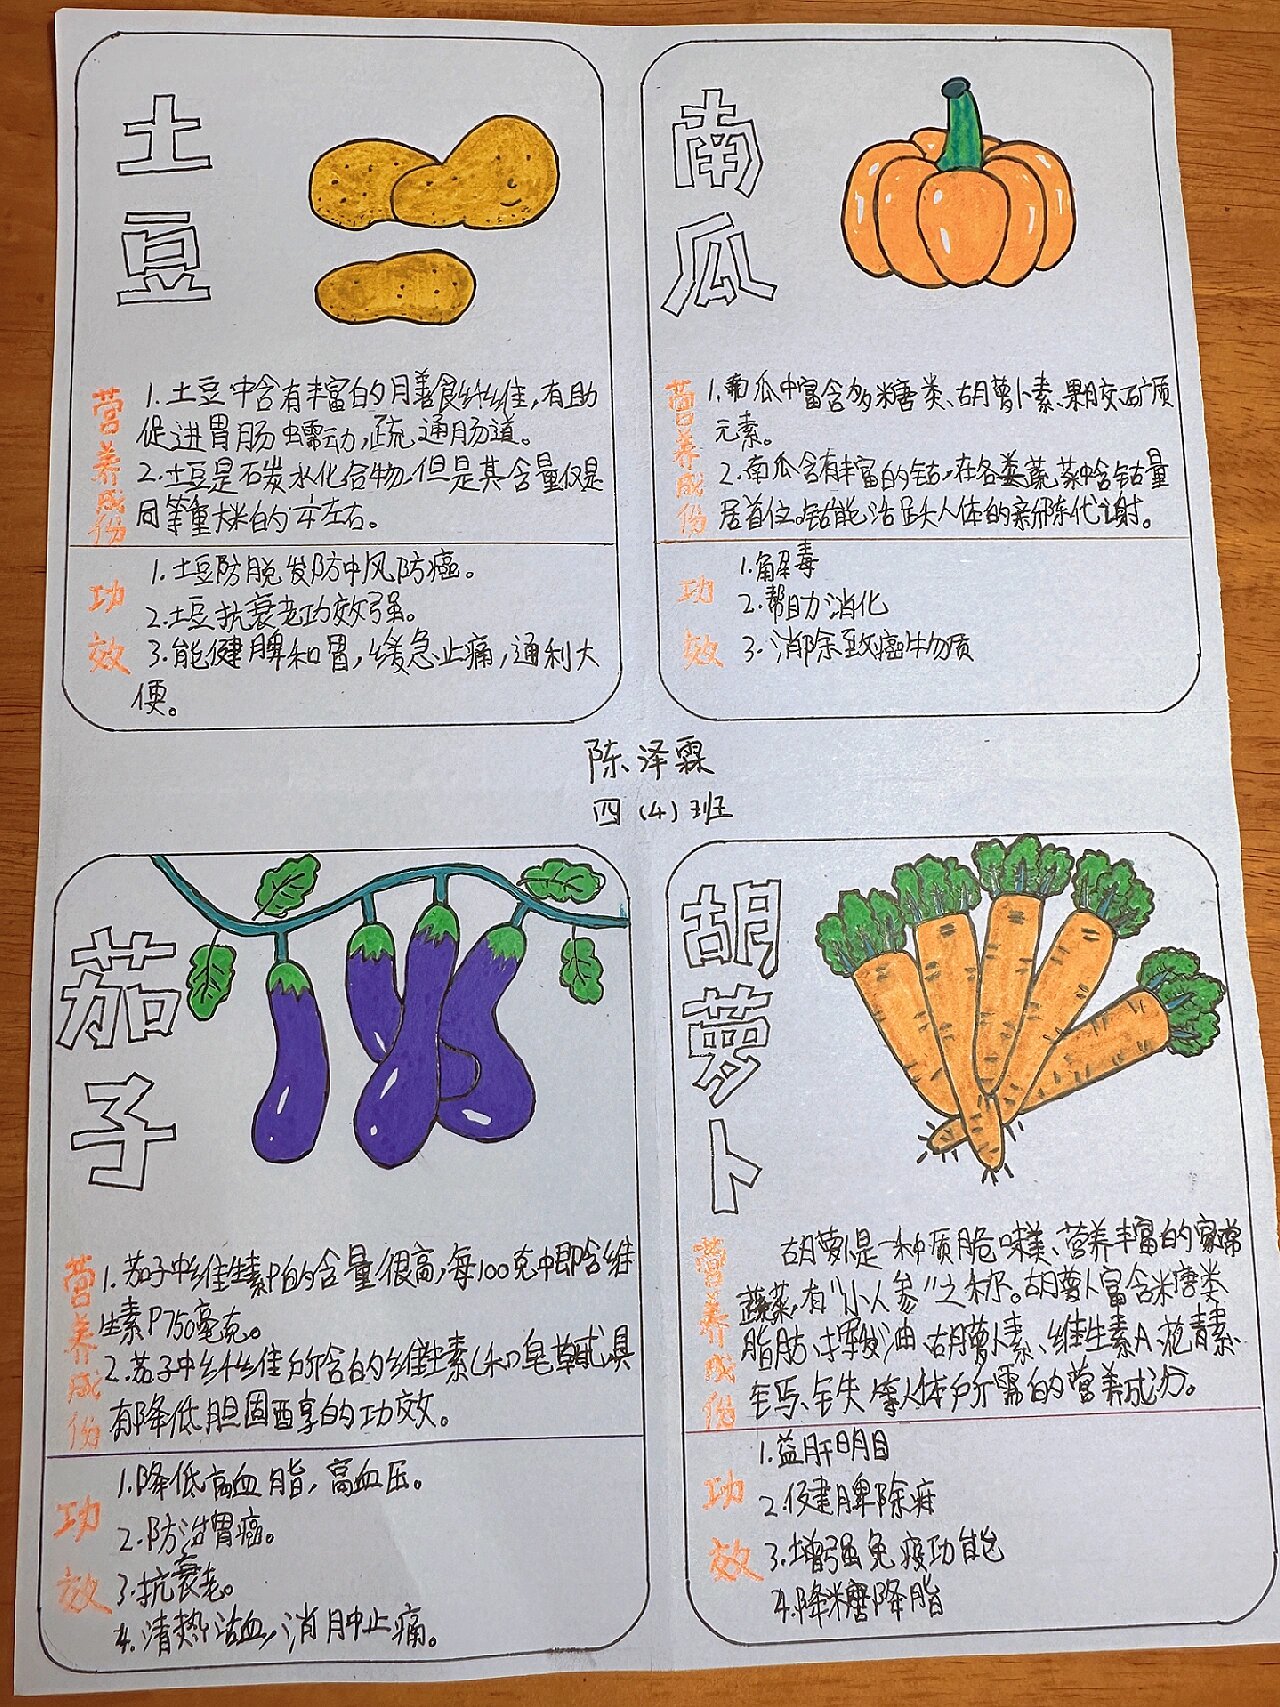 土豆
营养成份
1.土豆中含有丰富的膳食纤维,有助
促进胃肠蠕动,疏通肠道。
2.土豆是石炭水化合物,但是其含量仅是
同等重大米的 左右。
功效
1.土豆防脱发防中风防癌。
2.土豆抗衰老功效强。
3.能健脾和胃,缓急止痛,通利大
便。
南瓜
营养成份
1.南瓜中富含多糖类、胡萝卜素、果胶、矿质
元素。
2.南瓜含有丰富的钴,在各类蔬菜中含钴量
居首位。钴能活跃人体的新陈代谢。
功效
1.解毒
2.帮助消化
3.消除致癌物质
陈泽霖
四(4)班
茄子
营养成份
1.茄子中维生素P的含量很高,每100克中即含维
生素P750毫克。
2.茄子中纤维所含的维生素C和皂草甙具
有降低胆固醇的功效。
功效
1.降低高血脂,高血压。
2.防治胃癌。
3.抗衰老。
4.清热活血,消肿止痛。
胡萝卜
营养成份
胡萝卜是一种质脆味美、营养丰富的家常
蔬菜,有“小人参”之称。胡萝卜富含糖类
脂肪、挥发油、胡萝卜素、维生素A、花青素、
钙、铁等人体所需的营养成分。
功效
1.益肝明目
2.健脾除疳
3.增强免疫功能
4.降糖降脂